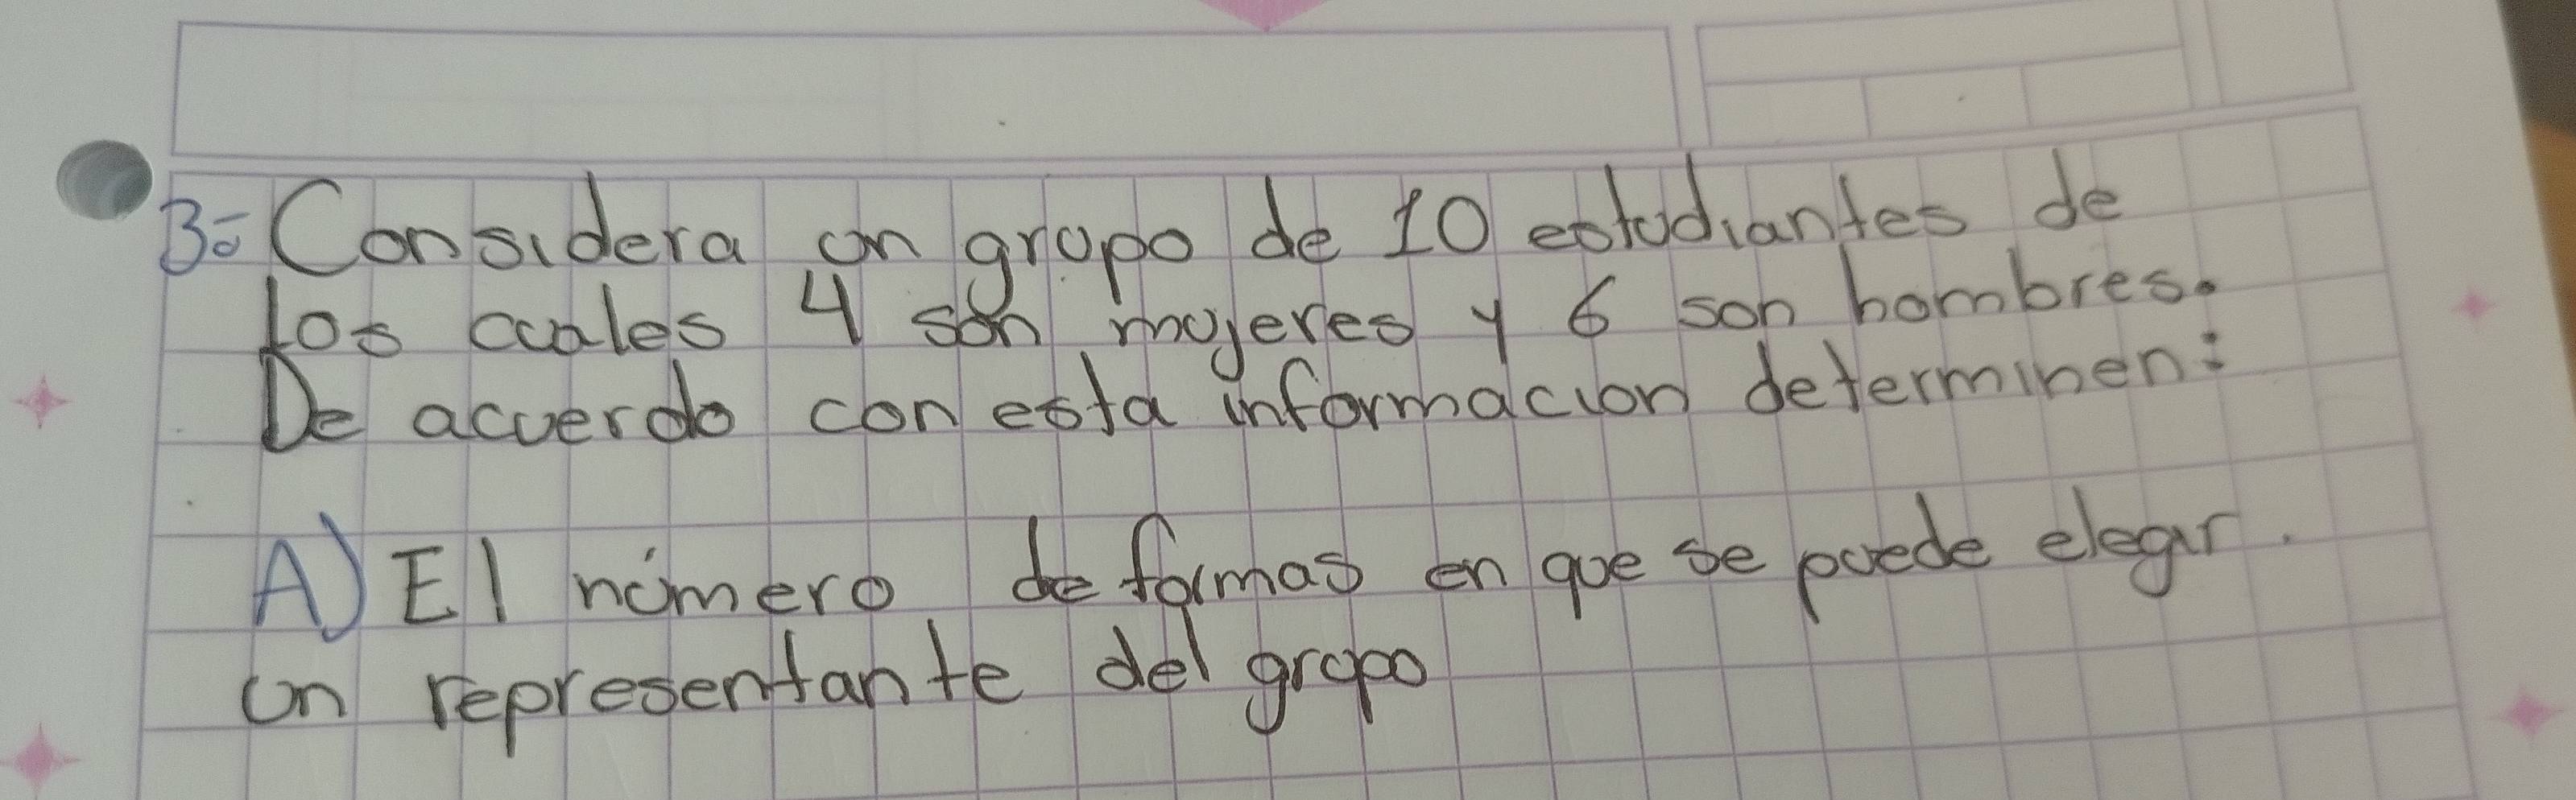 3.- Considera un grupo de 10 estudiantes de
los cuales 4 son mujeres y 6 son hombres.
De acuerdo con esta informacion determinen:
A) El número de formas en que se puede elegir.
un representante del grupo